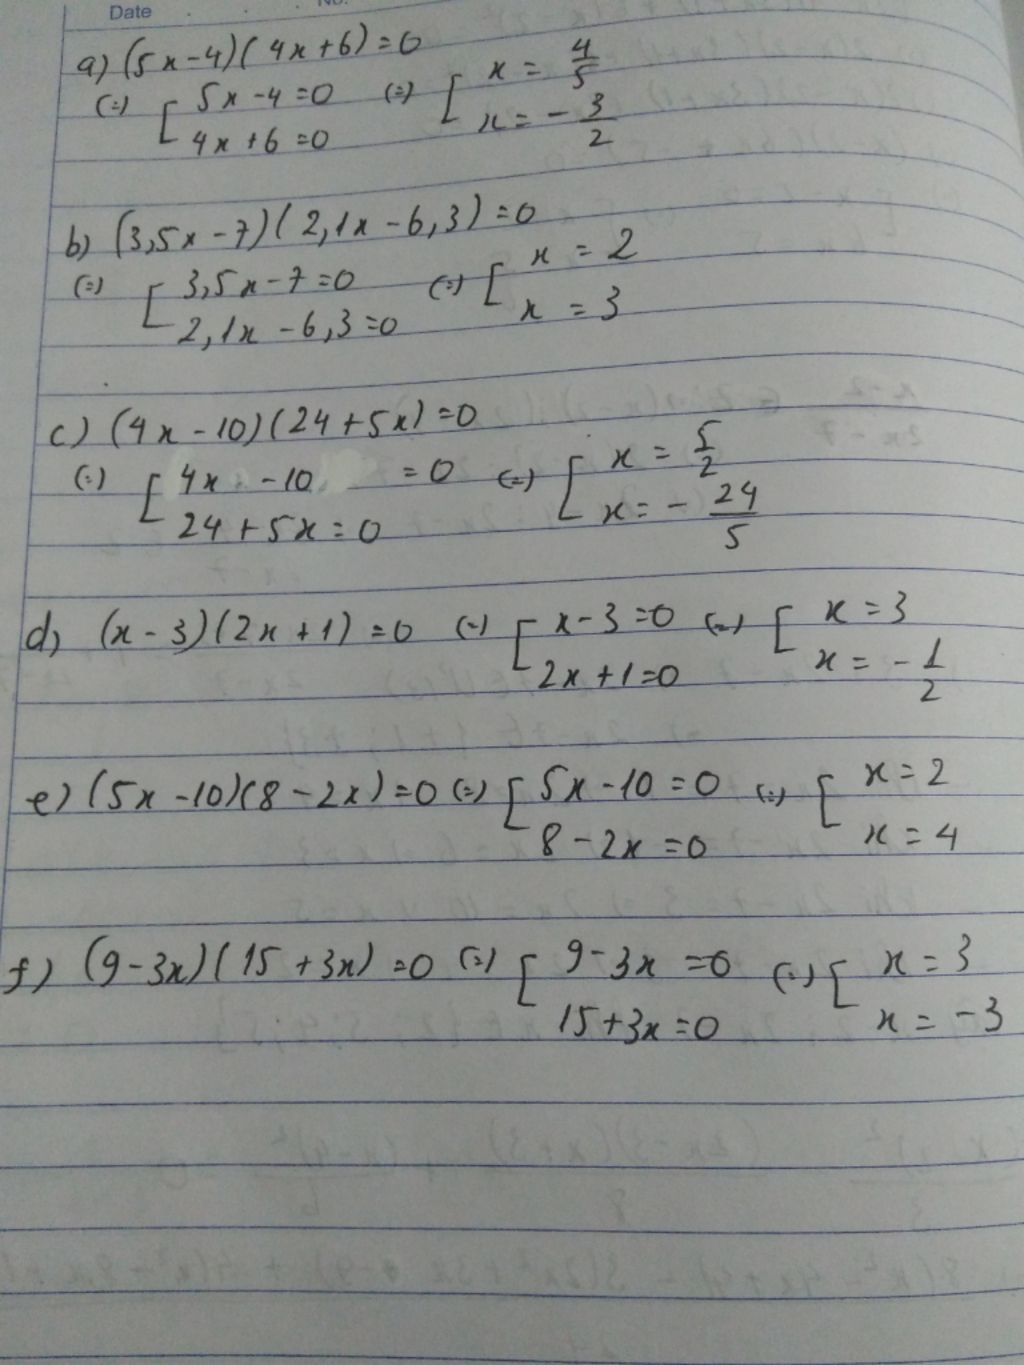 Date No.
a) (5x-4)(4x+6)=0
(=) [ 5x-4=0 (=) [ x = 4/5
4x+6=0 x = -3/2
b) (3,5x-7)(2,1x-6,3)=0
(=) [ 3,5x-7=0 (=) [ x = 2
2,1x-6,3=0 x = 3
c) (4x-10)(24+5x)=0
(=) [ 4x -10 =0 (=) [ x = 5/2
24+5x=0 x = -24/5
d) (x-3)(2x+1)=0 (=) [ x-3=0 (=) [ x=3
2x+1=0 x = -1/2
e) (5x-10)(8-2x)=0 (=) [ 5x-10=0 (=) [ x=2
8-2x=0 x=4
f) (9-3x)(15+3x)=0 (=) [ 9-3x=0 (=) [ x=3
15+3x=0 x=-3